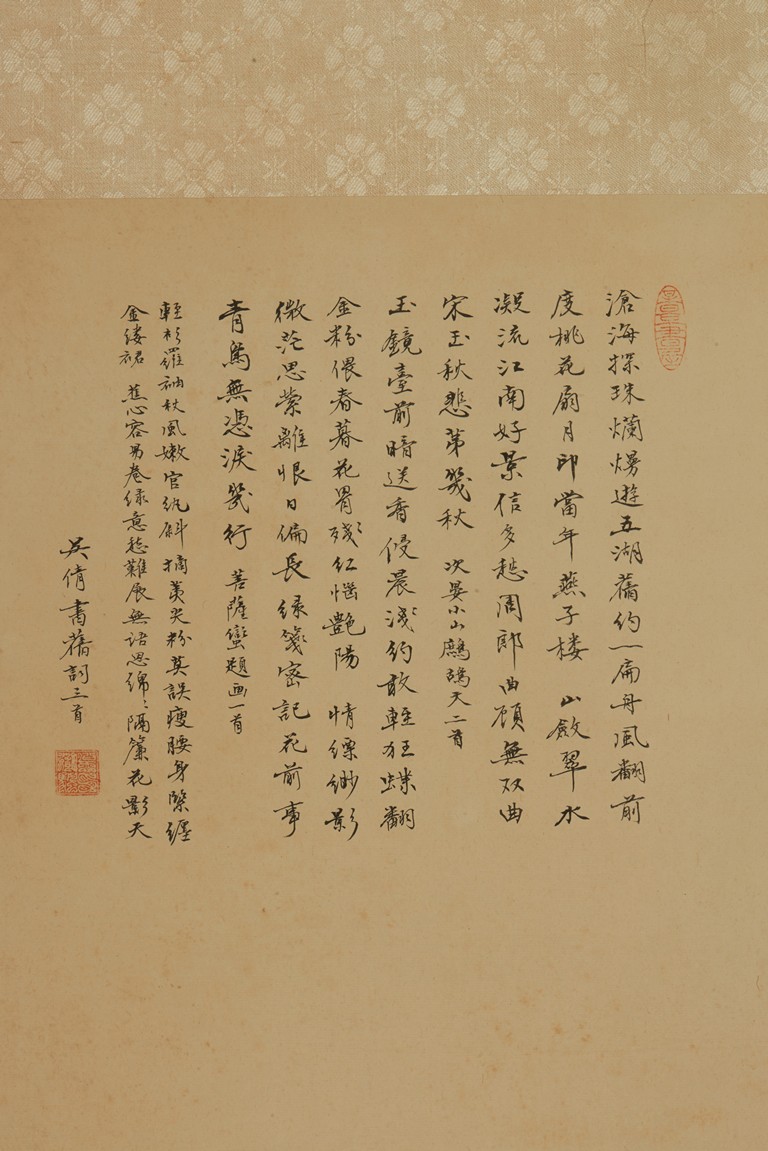 滄海探珠爛熳遊五湖舊約一扁舟風翻前
度桃花扇月印當年燕子楼 山斂翠水
凝流江南好景信多愁周郎曲顾無双曲
宋玉秋悲第幾秋 次晏小山鷓鴣天二首
玉鏡臺前暗送香侵晨淺淺約敢輕狂蝶翻
金粉偎春暮花胃殘紅惱艷陽 情縹緲影
微茫思縈離恨日偏長緑箋密記花前事
青鳥無憑淚幾行 菩薩蠻題画一首
輕衫羅袖秋風嫩官紈斜掩尖粉莫誤瘦腰身緊纏
金缕裙 蕉心容易卷緑意愁難展無語思綿綿隔簾花影天
吳倩書舊詞三首